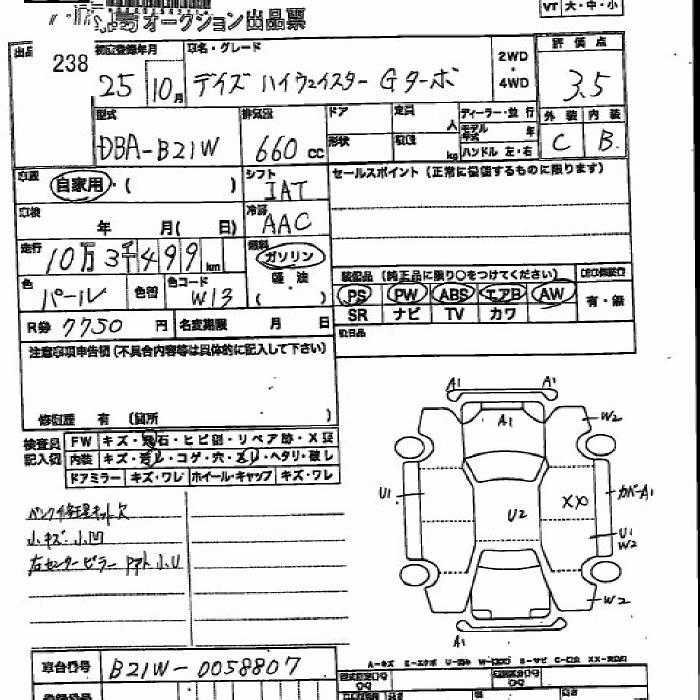 オークション出品票
VT 大・中・小
238
初度登録年月 車名・グレード 2WD・4WD 評価点
25 10月 デイズ ハイウェイスター Gターボ 3.5
型式 排気量 ドア 定員 人 ディーラー・並行 外装 内装
DBA-B21W 660cc 形状 kg モデル年式 年 ハンドル 左・右 C B
車歴 自家用・( ) シフト IAT セールスポイント(正常に機能するものに限ります)
車検 年 月( 日) 冷房 AAC
走行 10万3千499km 燃料 ガソリン
軽・油
( )
装備品(純正品に限り○をつけてください)
色 パール 色替 色コード W13
PS PW ABS エアB AW 有・無
SR ナビ TV カワ
R券 7750円 名変期限 月 日
注意事項申告欄(不具合内容等は具体的に記入して下さい)
修復歴 有(箇所 )
検査員記入欄 FW キズ・飛石・ヒビ割・リペア跡・X要
内装 キズ・汚れ・コゲ・穴・スレ・ヘタリ・破レ
ドアミラー キズ・ワレ ホイール・キャップ キズ・ワレ
パンク修理キット欠
小キズ 小凹
右センターピラー アト小U
A1 A1
A1
W2
U1
カバーA1
XX
U2
U1
W2
W2
A1
A-キズ
車台番号 B21W-0058807